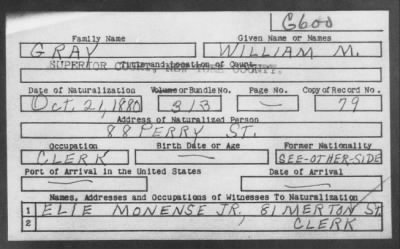 G600
Family Name Given Name or Names
GRAY WILLIAM M.
Title and Location of Court
SUPERIOR COURT, NEW YORK COUNTY.
Date of Naturalization Volume or Bundle No. Page No. Copy of Record No.
Oct. 21, 1880 313 — 79
Address of Naturalized Person
88 PERRY ST.
Occupation Birth Date or Age Former Nationality
CLERK — SEE-OTHER-SIDE
Port of Arrival in the United States Date of Arrival
— —
Names, Addresses and Occupations of Witnesses To Naturalization
1 ELIE MONENSE JR, 81 MERTON ST.
2 CLERK